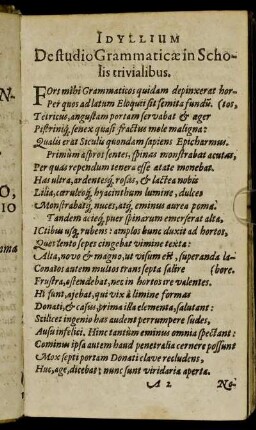 IDYLLIUM
De studio Grammaticæ in Scho-
lis trivialibus.
FOrs mihi Grammaticos quidam depinxerat hor-
Per quos ad latum Eloquii sit semita fundũ. (tos,
Tetricus, angustam portam servabat & ager
Pistrinũ, senex quasi fractus mole maligna:
Qualis erat Siculus quondam sapiens Epicharmus.
Primùm aspros sentes, spinas monstrabat acutas,
Per quas rependum tenera esse ætate monebat.
Has ultra, ardentesq́; rosas, & lactea nobis
Lilia, cæruleosq́; hyacinthum lumine, dulces
Monstrabatq́; nuces, atq́; eminus aurea poma.
Tandem acieq́; puer spinarum emerserat alta,
ICtibus usq́; rubens: amplos hunc duxit ad hortos,
Quos lento sepes cingebat vimine texta:
Alta, novo & magno, ut visum est, superanda la-
Conatos autem multos transsepta salire (bore.
Frustra, ostendebat, nec in hortos ire valentes.
Hi sunt, ajebat, qui vix à limine formas
Donati, & casus, prima illa elementa, salutant:
Scilicet ingenio has audent perrumpere sudes,
Ausu infelici. Hinc tantùm eminus omnia spectant:
Cominus ipsa autem haud penetralia cernere possunt
Mox septi portam Donati clave recludens,
Huc, age, dicebat; nunc sunt viridaria aperta.
A 2 Na-
N-
O,
IO
ma